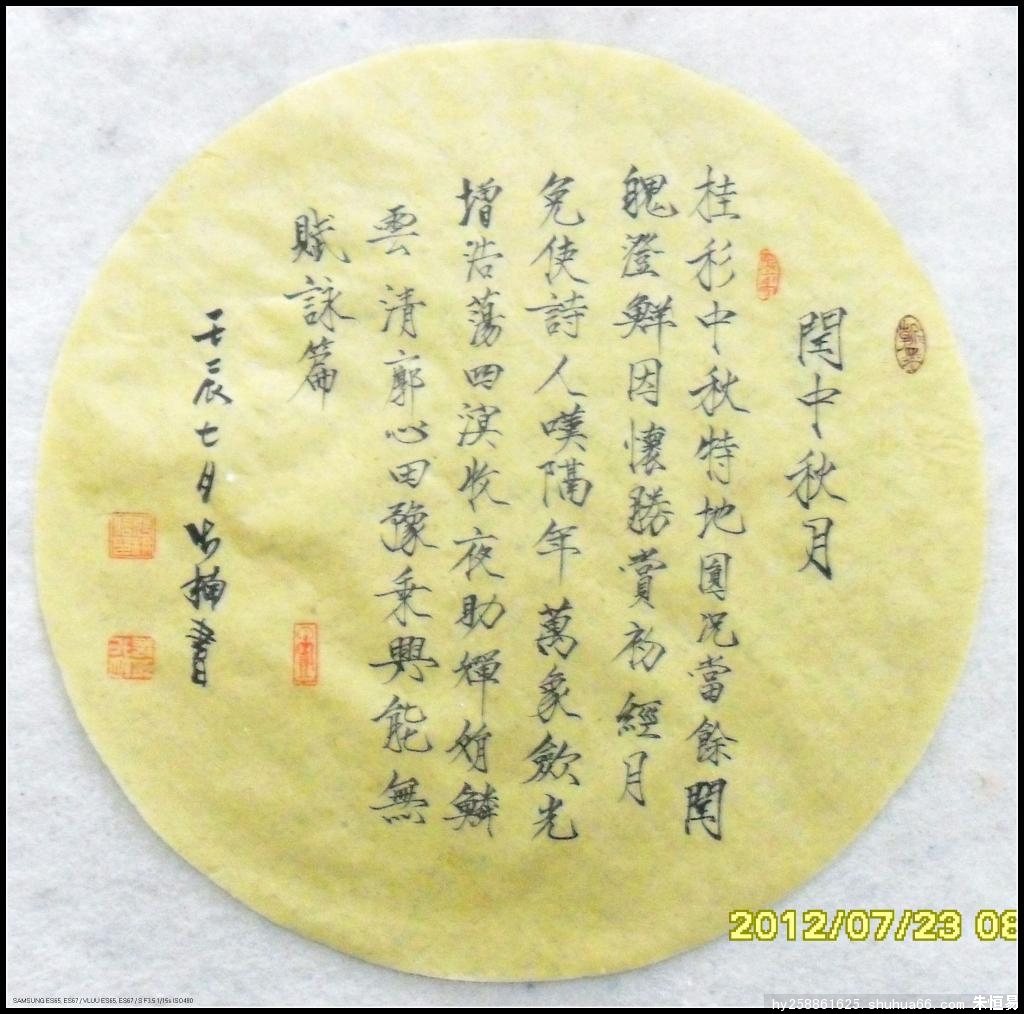 閏中秋月
桂彩中秋特地圓況當餘閏
魄澄鮮因懷勝賞初經月
免使詩人嘆隔年萬象歛光
增浩蕩四溟收夜助嬋娟鱗
雲清廓心田豫乘興能無
賦詠篇
壬辰七月 楠書
2012/07/23 08
SAMSUNG ES65, ES67 / VLUU ES65, ES67 / S F3.5 1/15s ISO480
hy258861625.shuhua66.com 朱恒易